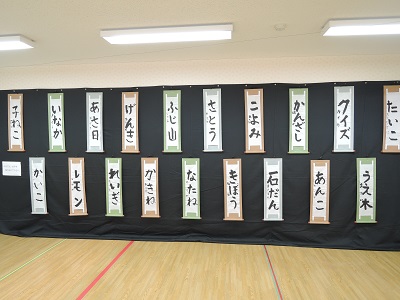 子ねこ
いなか
あさ日
げんき
ふじ山
さとう
こよみ
かんざし
クイズ
たいこ
かいこ
レモン
れいぎ
かさね
なたね
きぼう
石だん
あんこ
うえ木